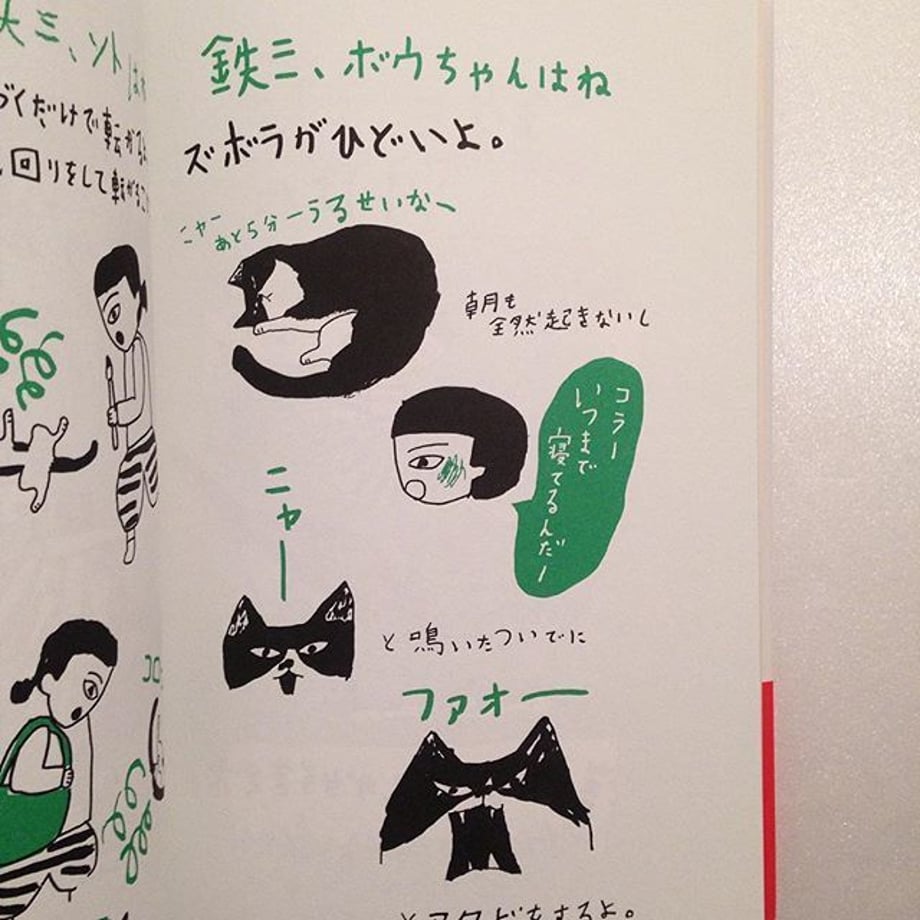 鉄三、ボウちゃんはね
ズボラがひどいよ。
ニャー
あと5分ーうるせいなー
朝も
全然起きないし
コラー
いつまで
寝てるんだー
ニャー
と鳴いたついでに
ファオー
とアクビをするよ。
大三、ソトはね
づくだけで転がるし
回りをして転がる
コロ